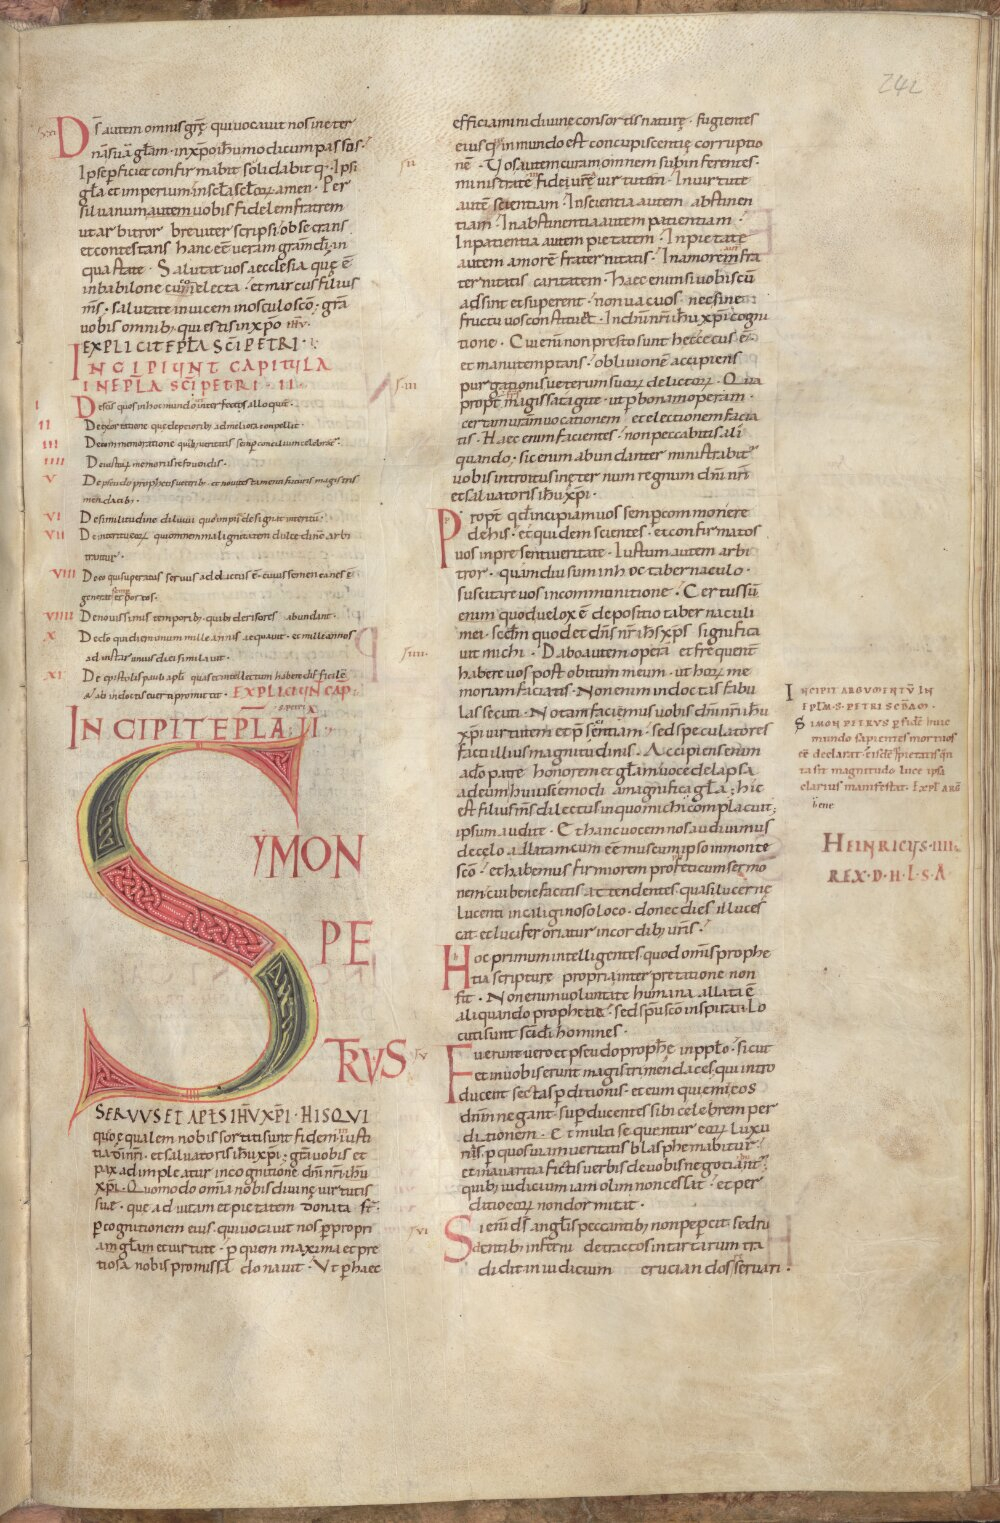 242
D̄s autem omnis grę qui vocavit nos in eter
nā suā gl̄am · in xp̄o ih̄u modicum passos ·
Ipse perficiet confirmabit solidabit q · Ipsi
gl̄a et imperium in scl̄a scl̄orum amen · Per
silvanum autem vobis fidelem fratrem
ut arbitror breviter scripsi obsecrans
et contestans hanc eē veram grām dī in
qua state · Salutat vos aecclesia quę ē
in babilone electa · et marcus filius
m̄s · salutate invicem in osculo scō · grā
vobis omnib; qui estis in xp̄o
EXPLICIT EPL̄A SC̄I PETRI · I ·
INCIPIUNT CAPITULA
IN EPL̄A SC̄I PETRI · II ·
I De his quos in hoc mundo
II De exortatione que deteriorib; ad meliora compellit ·
III De commemoratione
IIII De iustorum memoriis refovendis ·
V De pseudo prophetis veterib; et novi testamenti futuris magistris
mendacib; ·
VI De similitudine diluvii quo impii designat interitū ·
VII De interitu eorum qui omnem malignitatem dulcedinē arbi
trantur ·
VIII De eo qui superatus servus addictus ē · cui us semen canes ē
generat et porcos ·
VIIII De novissimis temporib; quib; derisores abundant ·
X De dō qui diem unum mille annis aequavit · et mille annos
ad instar unius diei similavit ·
XI De epistolis pauli apl̄i quas et intellectum habere difficilē
et ab indoctis everti promittit · EXPLICIUN̄ CAP̄
S · PETRI
INCIPIT EPL̄A · II ·
SYMON
PE
TRUS
SERVUS ET APL̄S IH̄U XP̄I · HIS QUI
quoęqualem nobis sortiti sunt fidem in iusti
tia dī nr̄i · et salvatoris ih̄u xp̄i ; grā vobis et
pax adimpleatur in cognitione dn̄i nr̄i ih̄u
xp̄i · Quomodo omīa nobis divinę virtutis
suę · que ad vitam et pietatem donata st̄ ·
p cognitionem eius · qui vocavit nos p propri
am gl̄am et virtute · p quem maxima et pre
tiosa nobis promissa donavit · Ut p haec
efficiamini divine consortes naturę · fugientes
eius quę in mundo est concupiscentię corruptio
nē · Vos autem curam omnem subinferentes ·
ministrate in fide vrā virtutem · In virtute
autē scientiam · In scientia autem abstinen
tiam · In abstinentia autem patientiam ·
In patientia autem pietatem · In pietate
autem amorē fraternitatis · In amore autem fra
ternitatis caritatem · Haec enim si vobiscū
adsint et superent · non vacuos nec sine
fructu vos constituet · In dn̄i nr̄i ih̄u xp̄i cogni
tione · Cui enim non presto sunt hec cecus ē ·
et manu temptans · oblivionē accipiens
purgationis veterum suorum delictorum · Qua
propt magis satagite · ut p bonam operam ·
certam vrām vocationem et electionem facia
tis · Haec enim facientes · non peccabitis ali
quando · sic enim abundanter ministrabit
vobis introitus in ęternum regnum dn̄i nr̄i
et salvatoris ih̄u xp̄i ·
Propt qd incipiam vos semp commonere
de his · et quidem scientes · et confirmatos
vos in presenti veritate · Iustum autem arbi
tror · quamdiu sum in hoc tabernaculo ·
suscitare vos in commonitione · Certus sū
enim quod velox ē depositio tabernaculi
mei · scdm quod et dn̄s nr̄ ih̄s xp̄s significa
vit michi · Dabo autem operā et frequent
habere vos post obitum meum · ut horum me
moriam faciatis · Non enim indoctas fabu
las secuti · Notam facimus vobis dn̄i nr̄i ih̄u
xp̄i virtutem et p̄sentiam · sed speculatores
facti illius magnitudinis · Accipiens enim
a dō patre honorem et gl̄am voce delapsa
ad eum huiuscemodi a magnifica gl̄a ; hic
est filius m̄s dilectus in quo michi complacuit ;
ipsum audite · Et hanc vocem nos audivimus
de celo adlatam cum eēmus cum ipso in monte
scō · et habemus firmiorem profeticum sermo
nem · cui bene facitis attendentes · quasi lucernę
lucenti in caliginoso loco · donec dies illuces
cat et lucifer oriatur in cordib; vr̄is ·
Hoc primum intelligentes quod omīs prophe
tia scripturę propria interpretatione non
fit · Non enim voluntate humana allata ē
aliquando prophetia · sed spū scō inspirati lo
cuti sunt sc̄i dī homines ·
Fuerunt vero et pseudo prophē in pplō · sicut
et in vobis erunt magistri mendaces · qui intro
ducent sectas pditionis · et eum qui emi eos
dn̄m negant · supducentes sibi celebrem per
ditionem · Et multi sequentur eorum luxu
rias · p quos via veritatis blasphemabitur ·
et in avaritia fictis verbis de vobis negotiant ·
quib; iudicium iam olim non cessat · et per
ditio eorum non dormitat ·
Si enī ds̄ anglis peccantib; non pepcit · sed ru
dentib; inferni detractos in tartarum tra
didit in iudicium cruciandos reservari ·
II
III
IIII
V
VI
INCIPIT ARGUMENTŪ IN
EPL̄AM · S · PETRI SCD̄AM ·
SIMON PETRUS p fidē huic
mundo sapientes mortuos
eē declarat · eisdē pietatis q̄n
ta sit magnitudo luce ipsa
clarius manifestat · EXPL̄ ARḠ
bene
HEINRICUS · IIII ·
REX · D · H · L · S · A